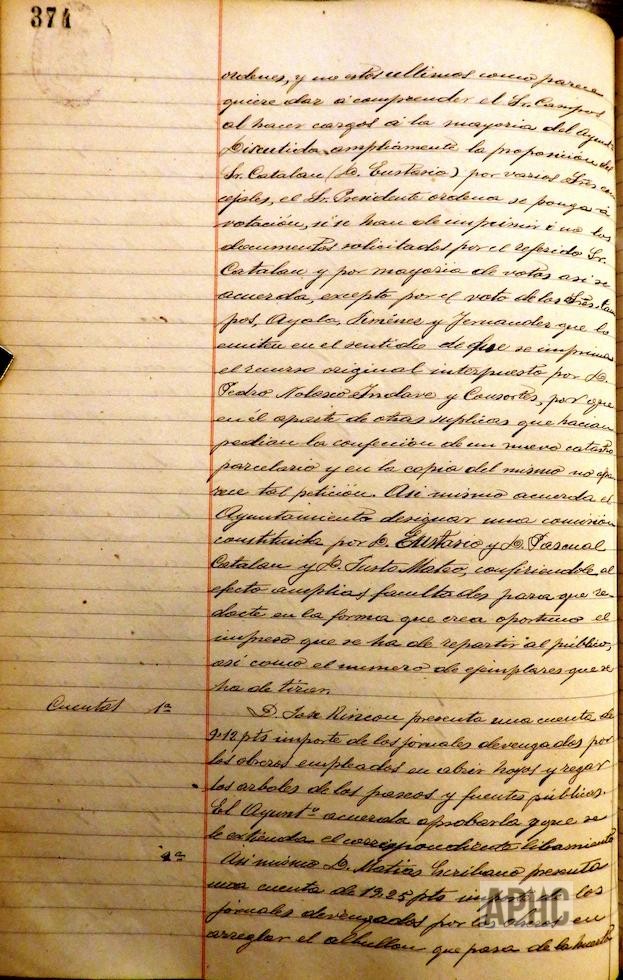 374
ordenes, y no estos ultimos como parece
quiere dar á comprender el Sr. Campos
al hacer cargos á la mayoria del Ayunt.
Discutida ampliamente la proposición del
Sr. Catalan (D. Eustasio) por varios Sres. con
cejales, el Sr. Presidente ordena se ponga á
votación, si se han de imprimir ó no los
documentos solicitados por el referido Sr.
Catalan y por mayoria de votos asi se
acuerda, excepto por el voto de los Sres. Cam
pos, Ayala, Jiménez y Fernandez que lo
emiten en el sentido de que se imprima
el recurso original interpuesto por D.
Pedro Nolasco y Consortes, por que
en él aparte de otras suplicas que hacian
pedian la confección de un nuevo catastro
parcelario y en la copia del mismo no apa
rece tal petición. Asi mismo acuerda el
Ayuntamiento designar una comisión
constituida por D. Eustasio y D. Pascual
Catalan y D. Justo Mateo, confiriendole al
efecto amplias facultades para que re-
dacte en la forma que crea oportuno el
impreso que se ha de repartir al público,
asi como el numero de ejemplares que se
ha de tirar.
Cuentas 1ª D. Jose Rincon presenta una cuenta de
9.12 pts importe de los jornales devengados por
los obreros empleados en abrir hoyos y regar
los arboles de los paseos y fuentes públicas.
El Ayuntº acuerda aprobarla y que se
le extienda el correspondiente libramiento
2ª Asi mismo D. Matias Escribano presenta
una cuenta de 19.25 pts importe de los
jornales devengados por los obreros en
arreglar el albullon que pasa de la huerta
APHC